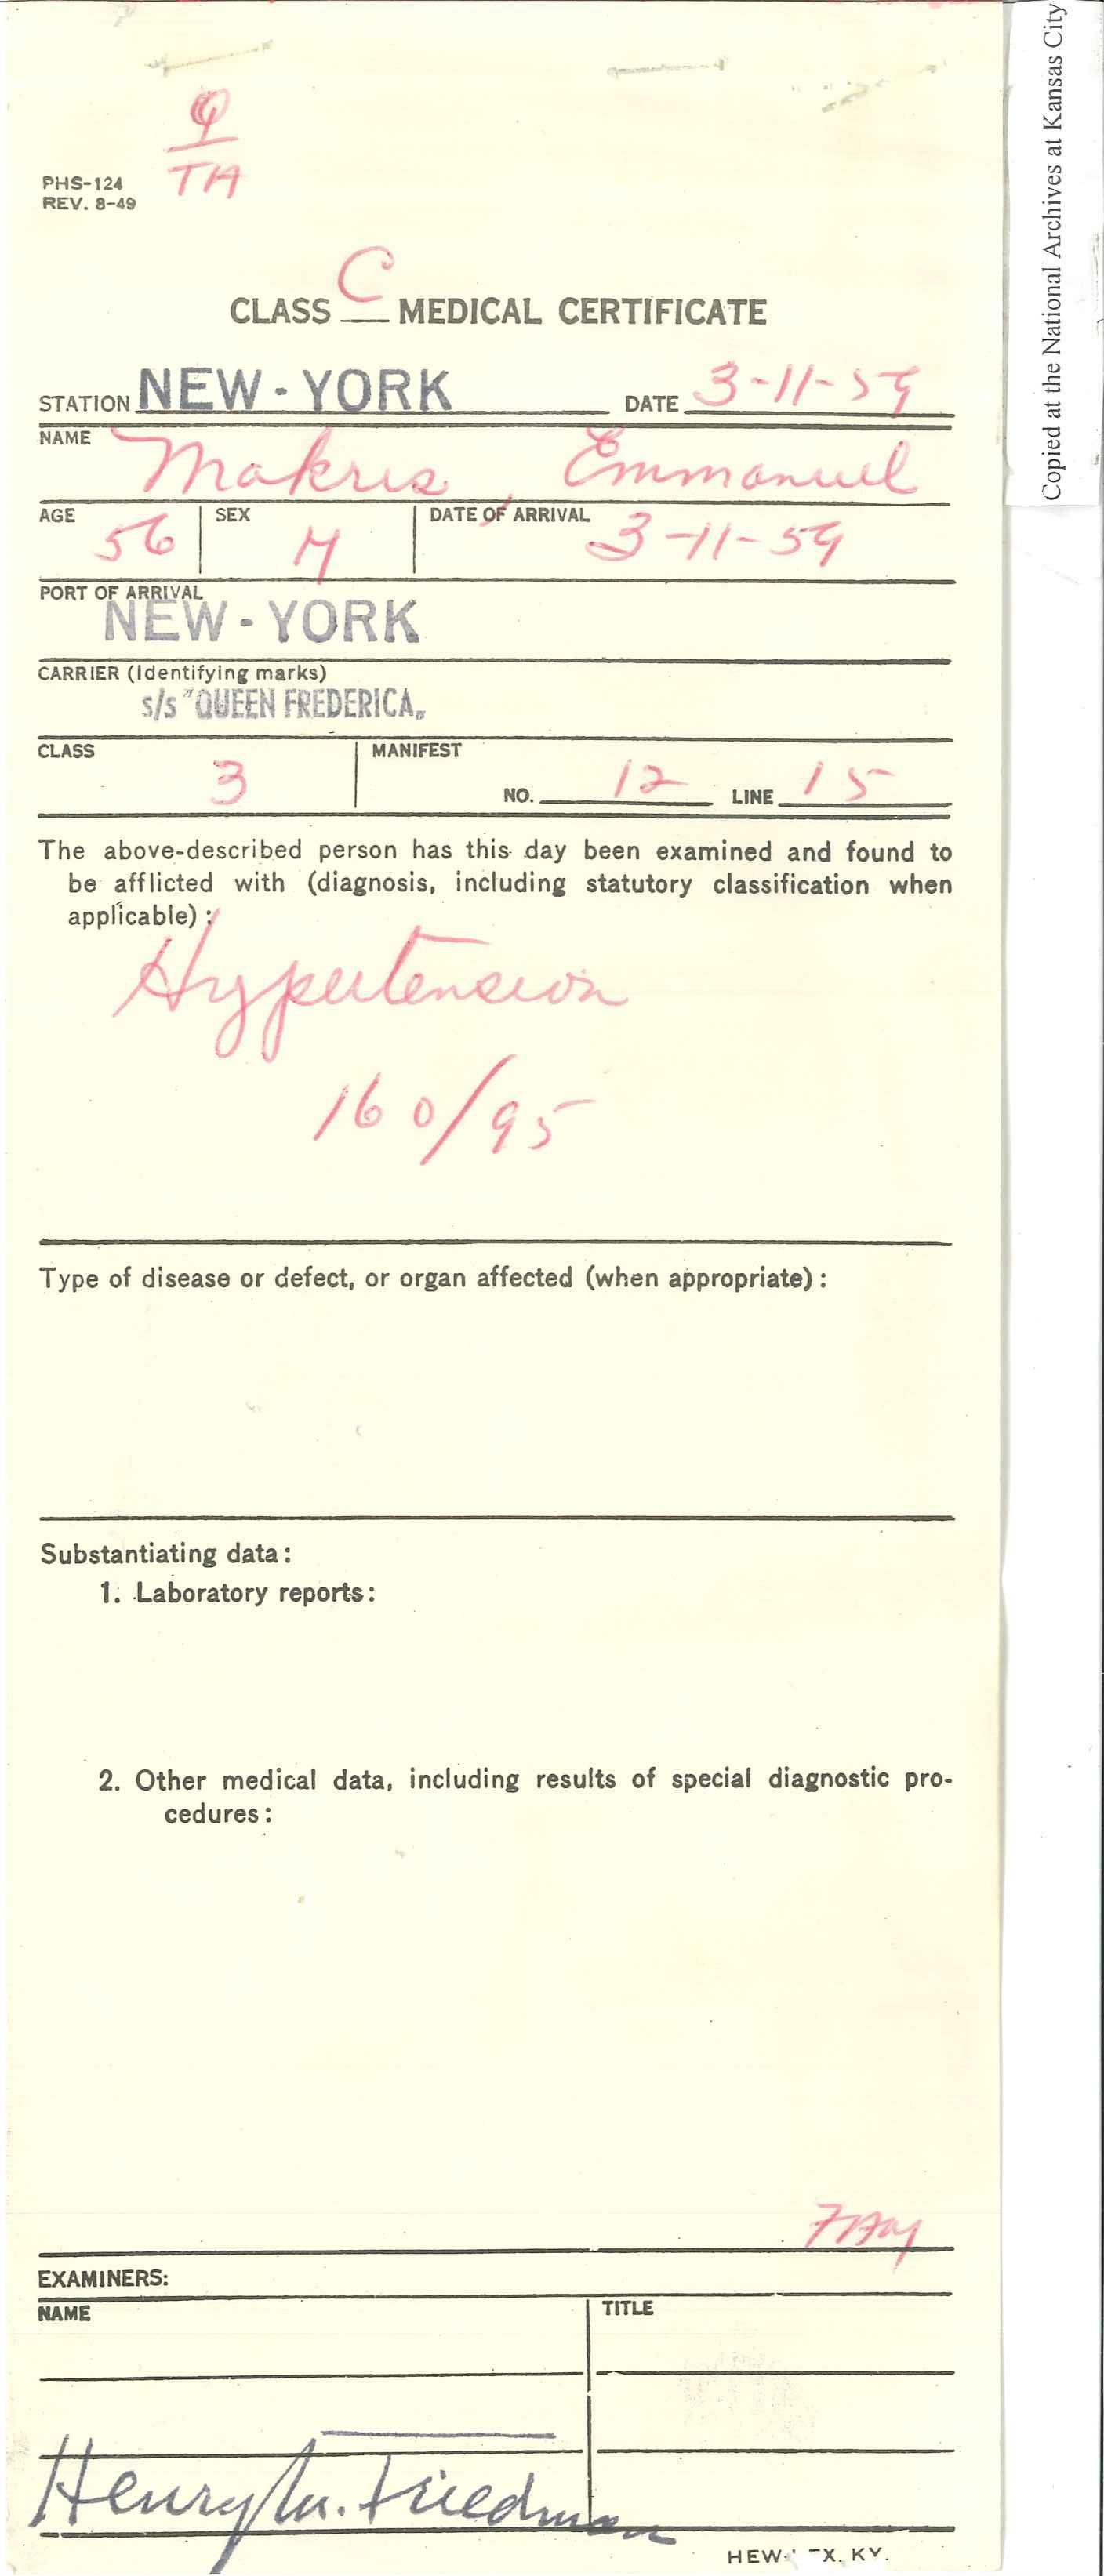 φ
TA
PHS-124
REV. 8-49
CLASS C MEDICAL CERTIFICATE
STATION NEW-YORK DATE 3-11-59
NAME
Makris, Emmanuel
AGE 56 SEX M DATE OF ARRIVAL 3-11-59
PORT OF ARRIVAL
NEW-YORK
CARRIER (Identifying marks)
s/s "QUEEN FREDERICA„
CLASS 3 MANIFEST
NO. 12 LINE 15
The above-described person has this day been examined and found to
be afflicted with (diagnosis, including statutory classification when
applicable):
Hypertension
160/95
Type of disease or defect, or organ affected (when appropriate):
Substantiating data:
1. Laboratory reports:
2. Other medical data, including results of special diagnostic pro-
cedures:
EXAMINERS:
NAME TITLE
Henry M. Friedman
HEW- EX. KY.
Copied at the National Archives at Kansas City